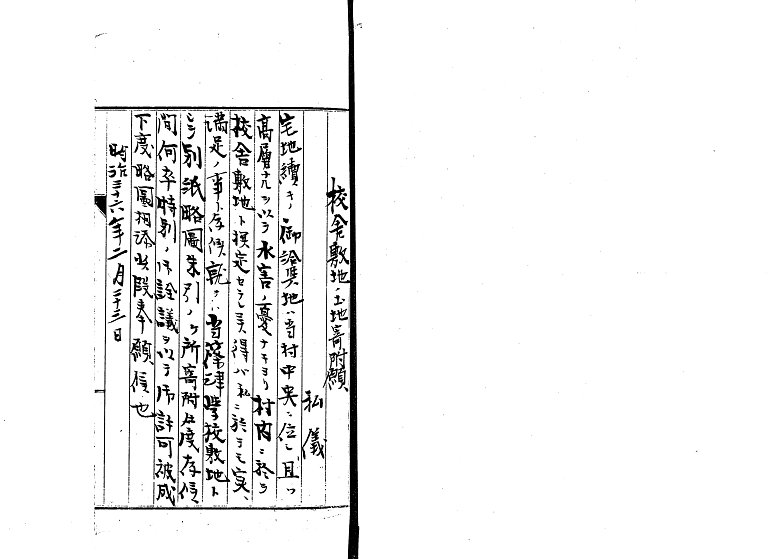 校舎敷地土地寄附願
私儀
宅地續キノ御詮奥地ハ当村中央ニ位シ且ツ
高層ナルヲ以テ水害ノ憂ナキヨリ村内ニ於テ
校舎敷地ト撰定セラレ得バ私ニ於テモ実ニ
満足ノ事ト存候就テハ当篠津学校敷地ト
シテ別紙略圖朱引ノヶ所寄附仕度存候
間何卒特別ノ御詮議ヲ以テ御許可被成
下度略圖相添此段奉願候也
明治三十六年二月二十三日